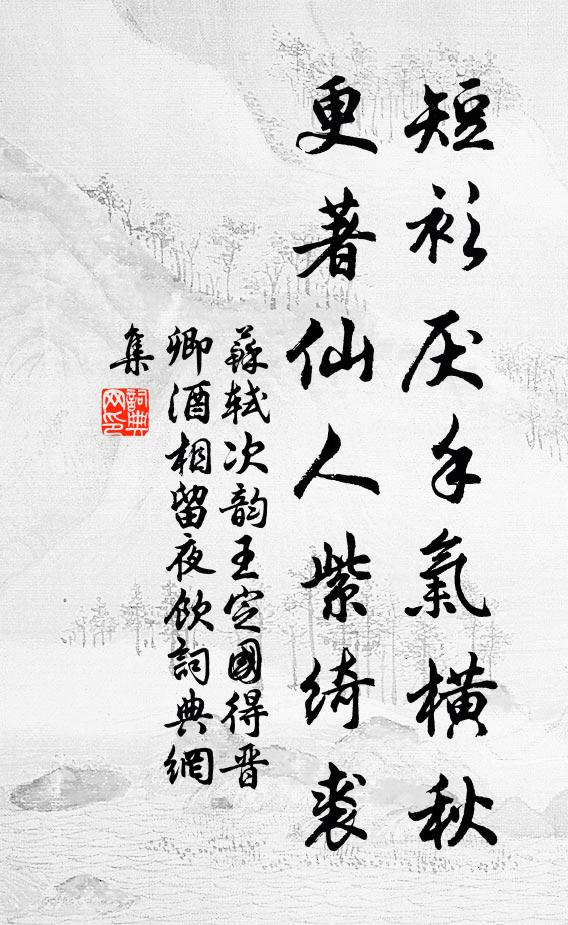 短衫厌手氣橫秋
更著仙人紫綺裘
蘇軾次韵王定國得晋
卿酒相留夜飲詞典網
集
詞典
网印